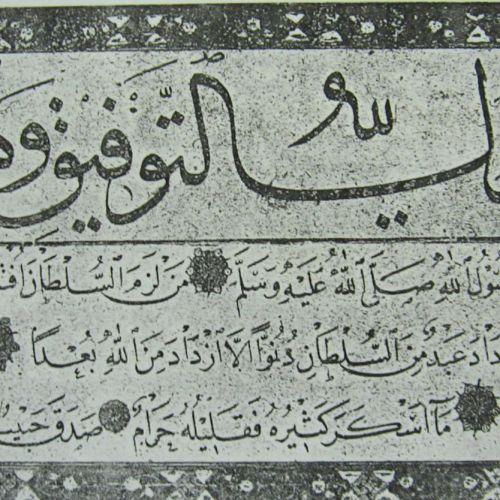 لله ولي التَّوفيق و
سُولُ اللهِ صَلَّى اللهُ عَلَيْهِ وَسَلَّمَ مَنْ لَزِمَ السُّلْطَانَ افْتـ
دَادَ عَبْدٌ مِنَ السُّلْطَانِ دُنُوًّا اِلَّا ازْدَادَ مِنَ اللهِ بُعْدًا
مَا اَسْكَرَ كَثِيرُهُ فَقَلِيلُهُ حَرَامٌ صَدَقَ حَبِيبُ